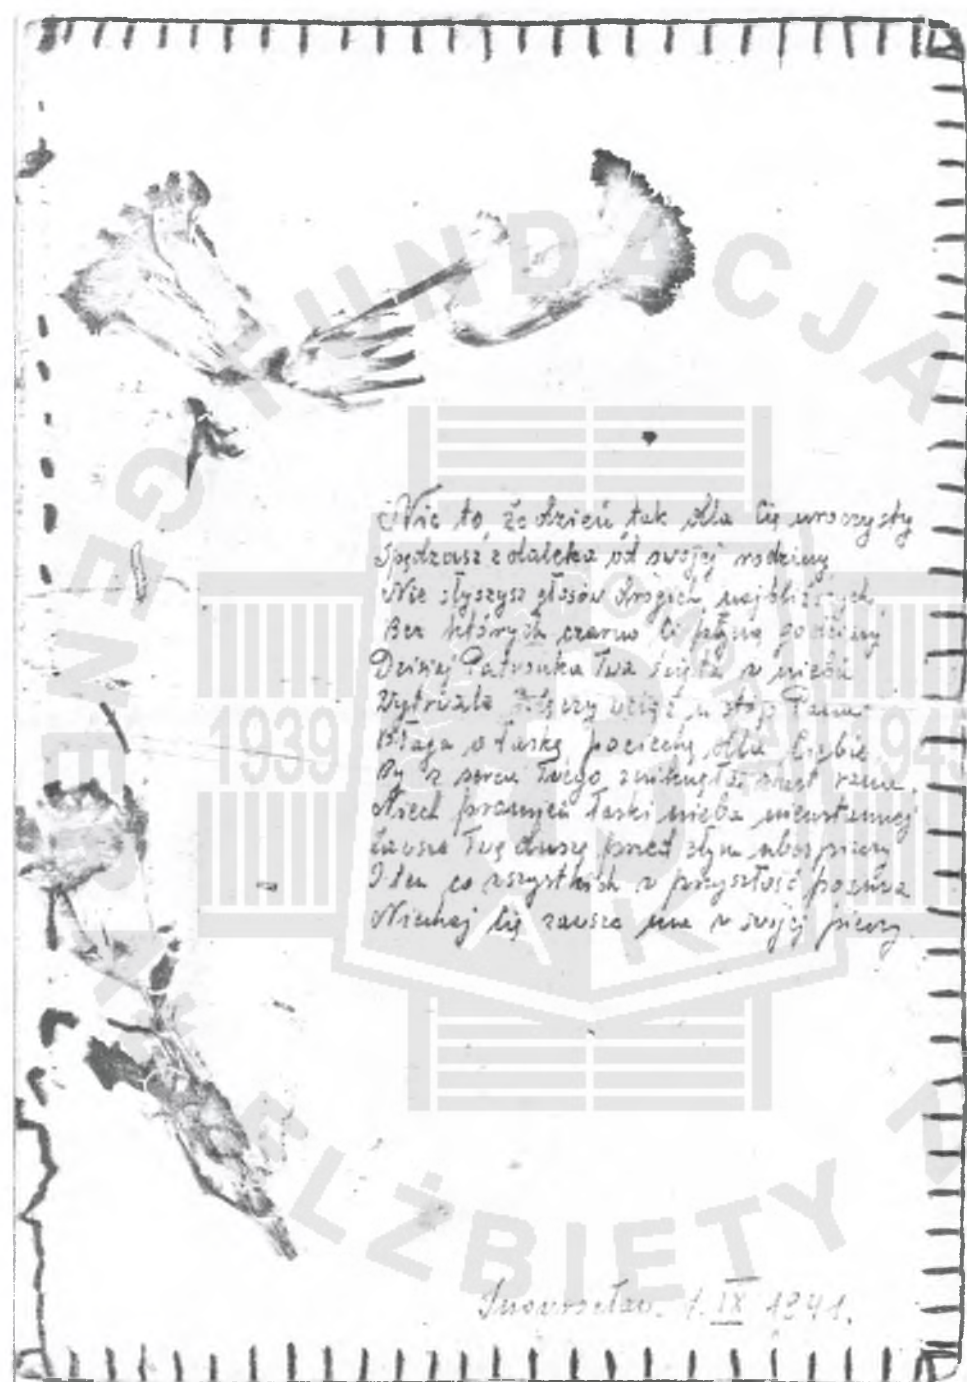 FUNDACJA
GEN
ELŻBIETY
1939
194
AK
Nic to, że dzień tak dla Cię uroczysty
Spędzasz z daleka od swojej rodziny
Nie słyszysz głosów drogich, najbliższych
Bez których czarno Ci płyną godziny
Dzisiaj Patronka Twa święta w niebie
Wytrwale klęczy wciąż u stóp Pana
Błaga o łaskę, pociechę dla Ciebie
By z serca Twego zniknęła rana.
Niech promień łaski nieba nieustannej
Zawsze Twą duszę przed złym ubezpieczy
I Ten co wszystkich w przyszłość
Niechaj Cię zawsze ma w swojej pieczy.
Inowrocław. 1. IX 1941.